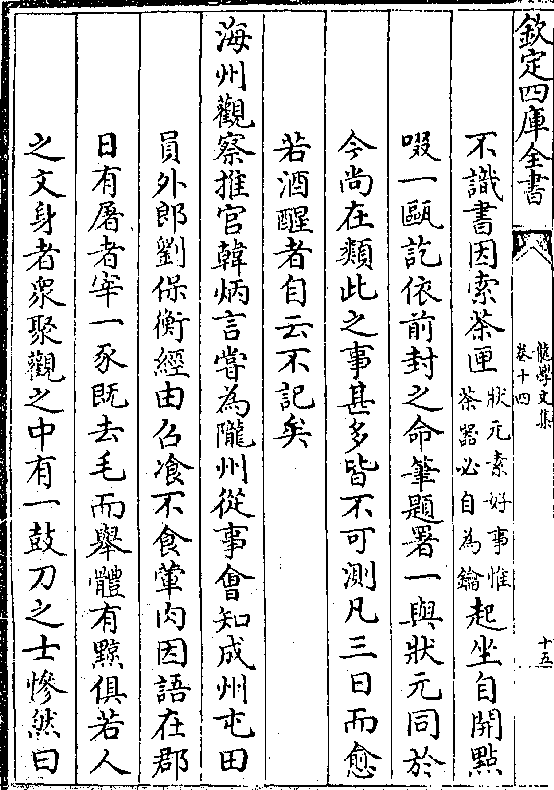 欽定四庫全書
龍學文集
卷十四
十五
不識書因索茶匣狀元素好事惟茶器必自為鑰起坐自開點
啜一甌訖依前封之命筆題署一與狀元同於
今尚在類此之事甚多皆不可測凡三日而愈
若酒醒者自云不記矣
海州觀察推官韓炳言嘗為隴州從事會知成州屯田
員外郎劉保衡經由召飡不食葷肉因語在郡
日有屠者宰一豕既去毛而舉體有黥俱若人
之文身者衆聚觀之中有一鼓刀之士慘然曰